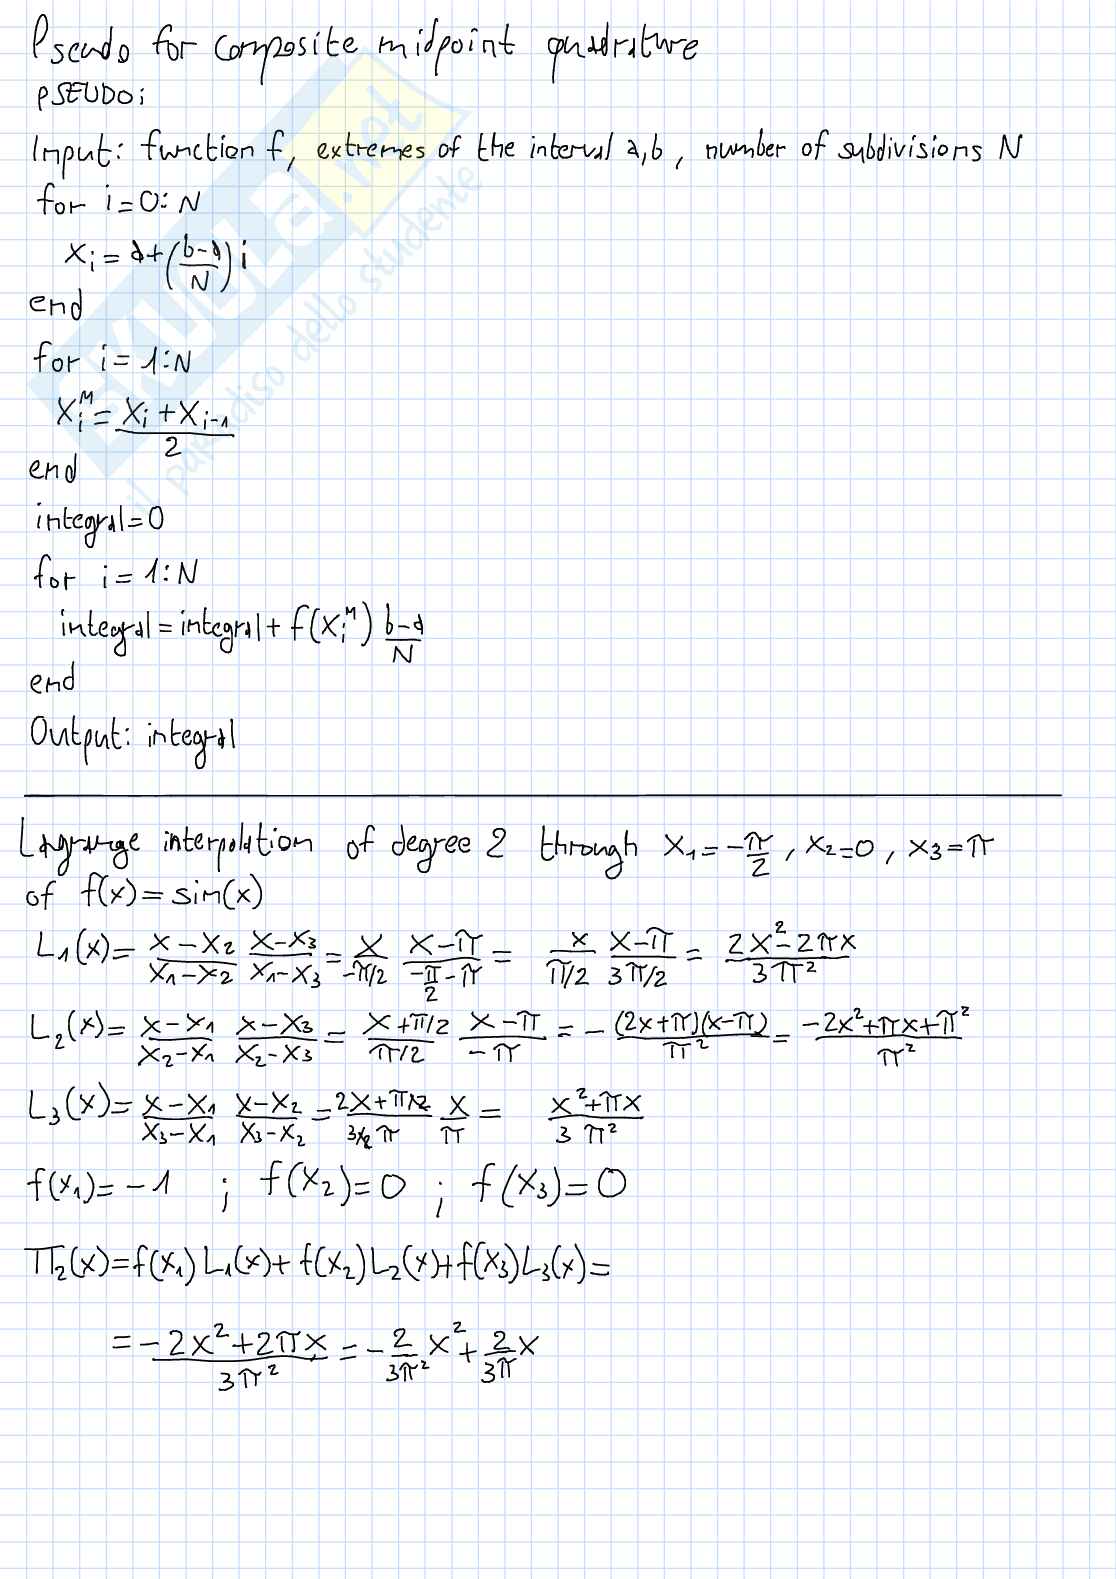 Pseudo for composite midpoint quadrature
PSEUDO:
Input: function f, extremes of the interval a,b, number of subdivisions N
for i=0:N
x_i = a+((b-a)/N) i
end
for i=1:N
x_i^M = (x_i + x_{i-1})/2
end
integral=0
for i=1:N
integral = integral + f(x_i^M) (b-a)/N
end
Output: integral
Lagrange interpolation of degree 2 through x_1 = -π/2, x_2=0, x_3=π
of f(x) = sin(x)
L_1(x) = (x-x_2)/(x_1-x_2) (x-x_3)/(x_1-x_3) = x/(-π/2) (x-π)/(-π/2-π) = x/(π/2) (x-π)/(3π/2) = (2x^2-2πx)/(3π^2)
L_2(x) = (x-x_1)/(x_2-x_1) (x-x_3)/(x_2-x_3) = (x+π/2)/(π/2) (x-π)/(-π) = -((2x+π)(x-π))/π^2 = (-2x^2+πx+π^2)/π^2
L_3(x) = (x-x_1)/(x_3-x_1) (x-x_2)/(x_3-x_2) = (2x+π/2)/(3/2 π) x/π = (x^2+πx)/(3 π^2)
f(x_1) = -1 ; f(x_2)=0 ; f(x_3)=0
Π_2(x) = f(x_1)L_1(x) + f(x_2)L_2(x) + f(x_3)L_3(x) =
= (-2x^2+2πx)/(3π^2) = -2/(3π^2) x^2 + 2/(3π) x
SKUOLA.net
il paradiso dello studente